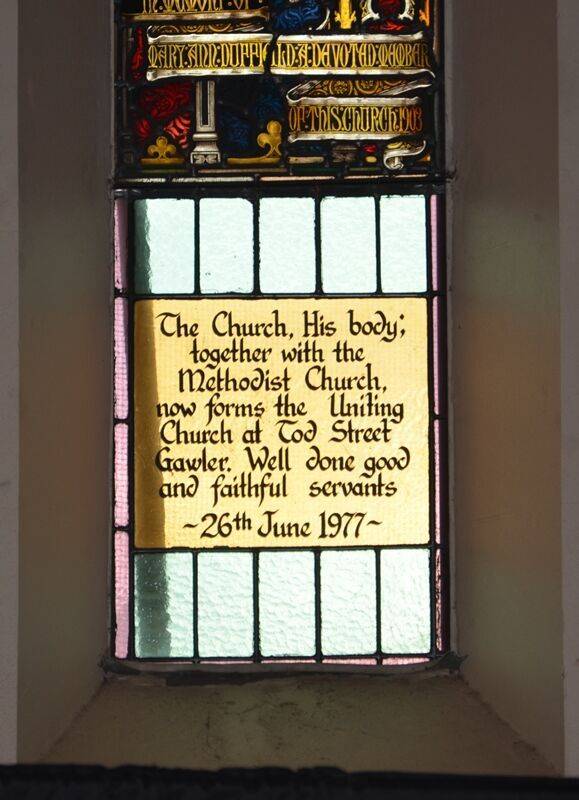 IN MEMORY OF
MARY ANN DUFFIELD A DAVOTAD MAMBAR
OF THIS CHURCH 1903
The Church, His body;
together with the
Methodist Church,
now forms the Uniting
Church at Tod Street
Gawler. Well done good
and faithful servants
~26th June 1977~